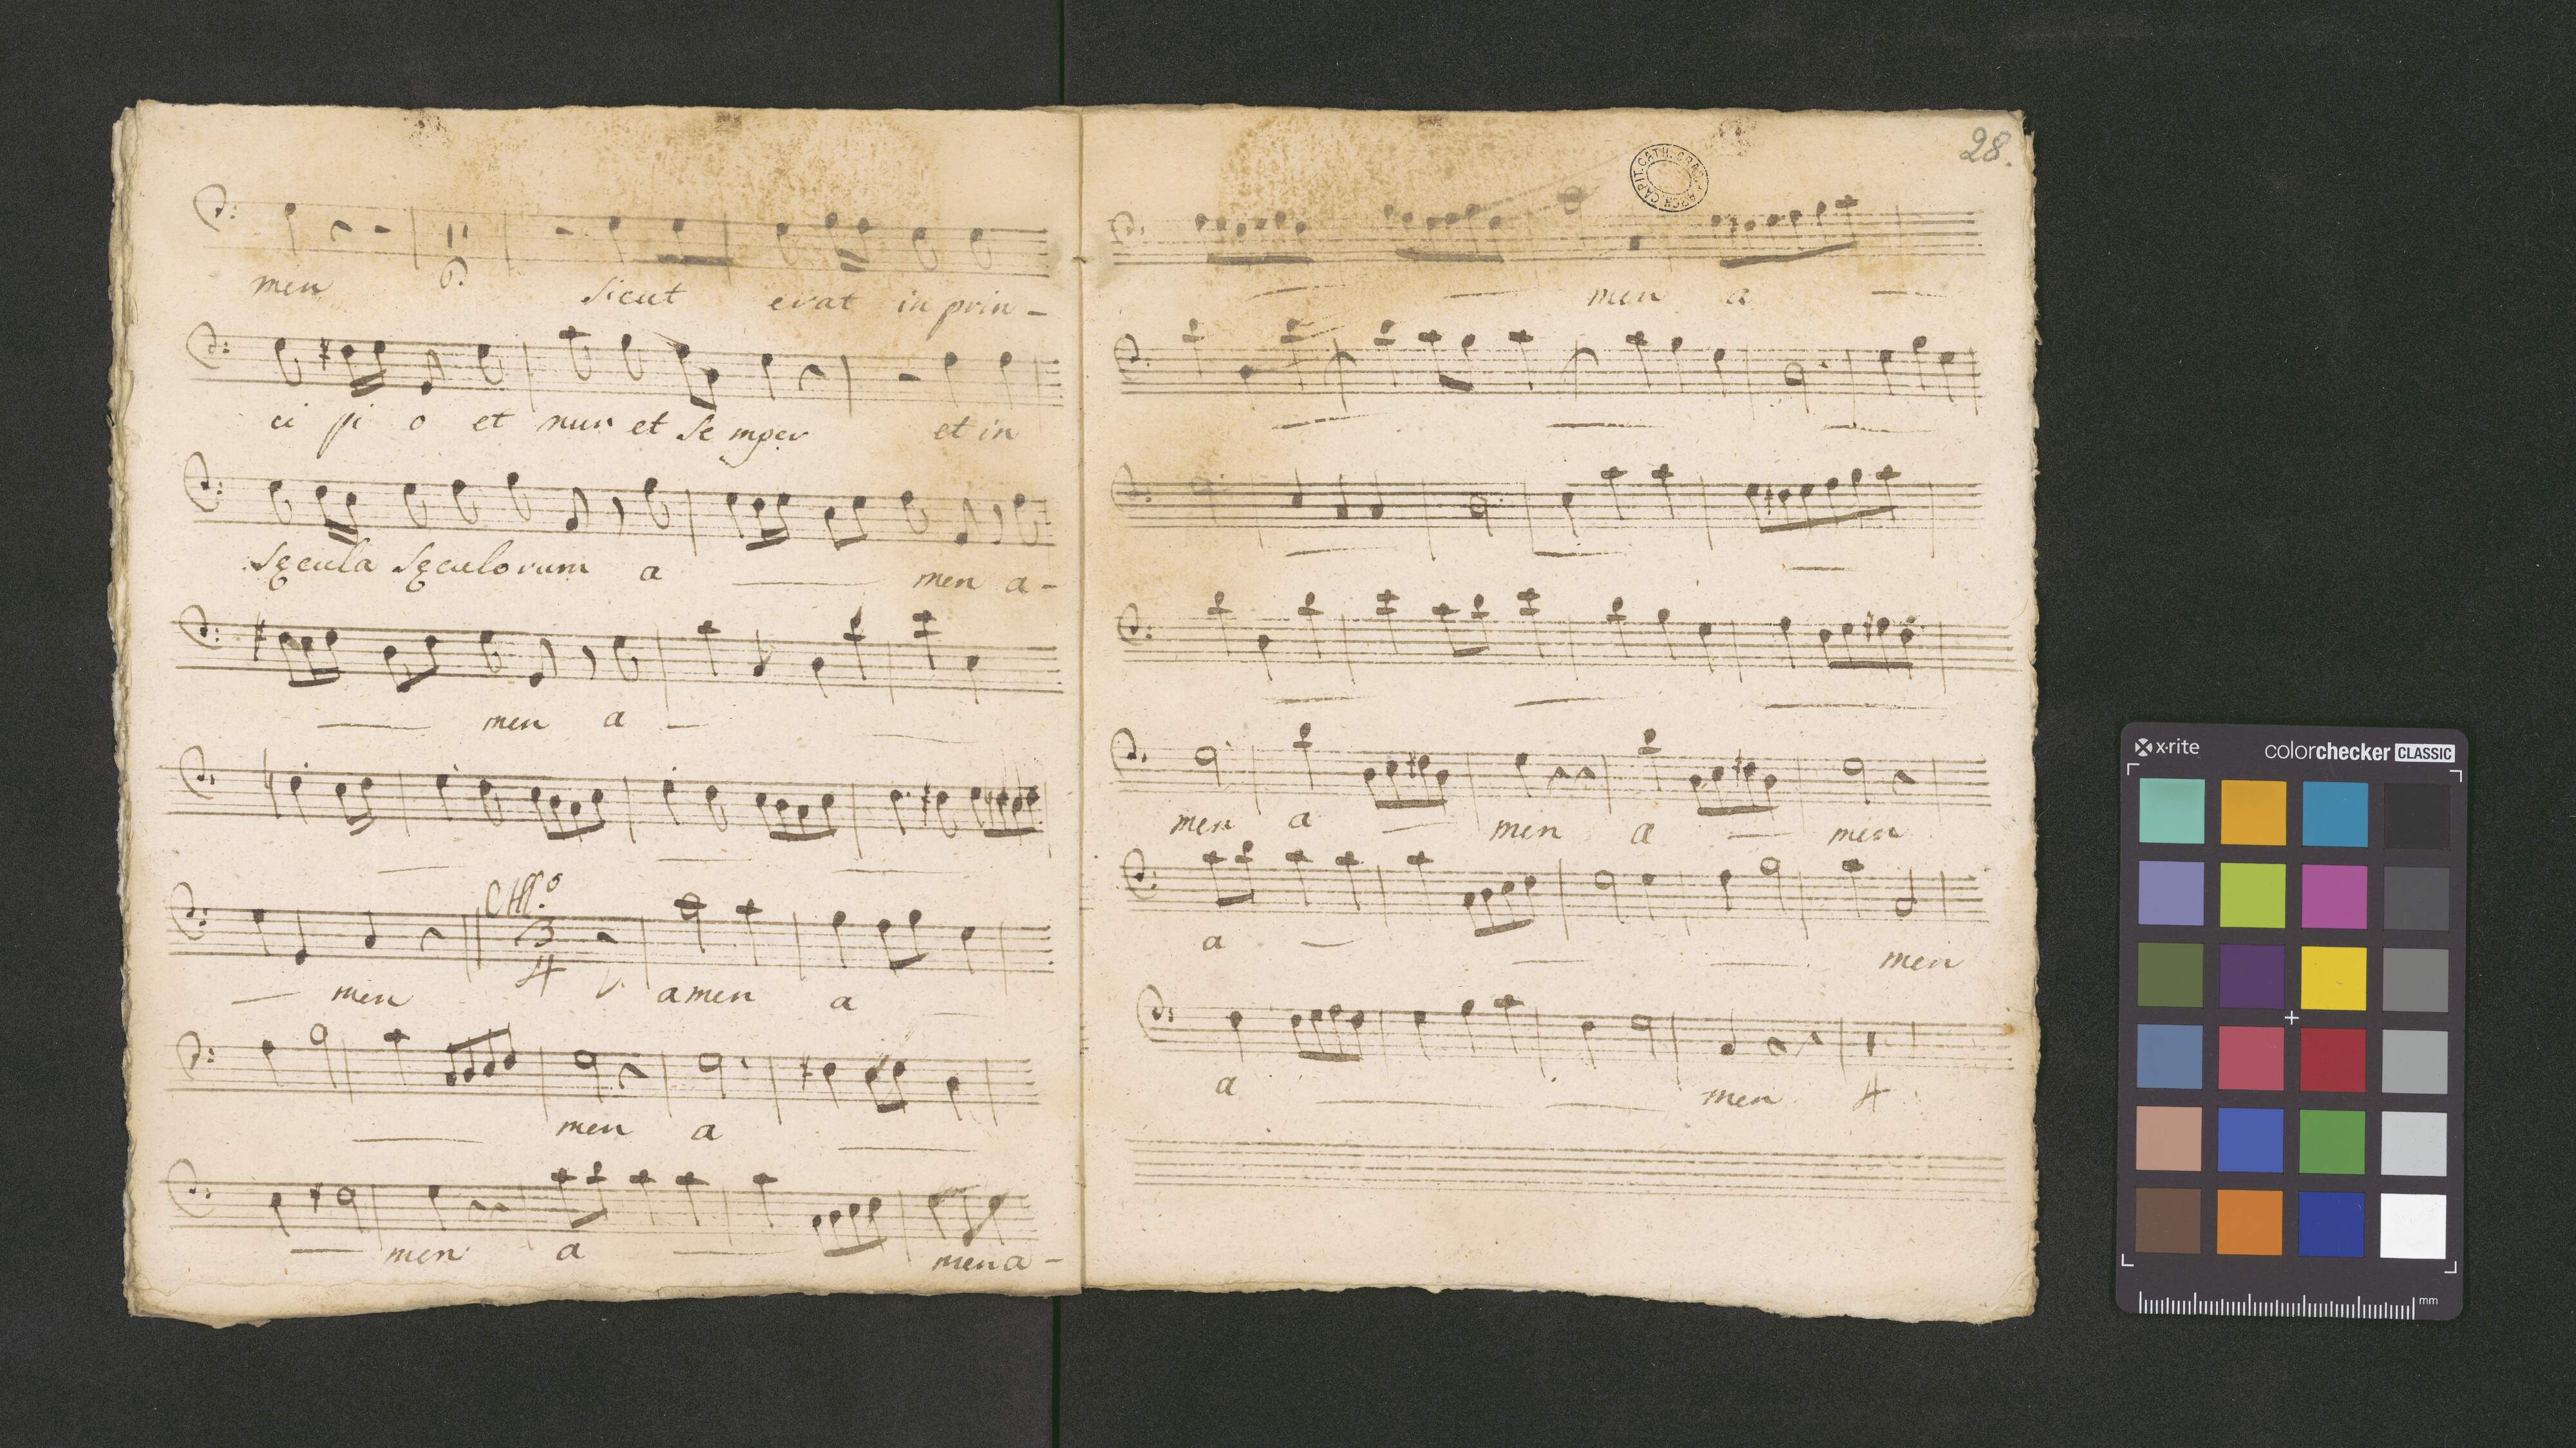 men 6. Sicut erat in prin-
ci pi o et nun et Se mper et in
Sęcula Sęculorum a — men a-
— men a —
All.º
3
4
— men amen a
— men a —
— men a — men a-
28.
ARCH. CAPIT. CATH. CRAC.
— — men a —
— — —
— — —
— — —
men a — men a — men
a — — — men
a — — men 4
x·rite colorchecker CLASSIC
mm